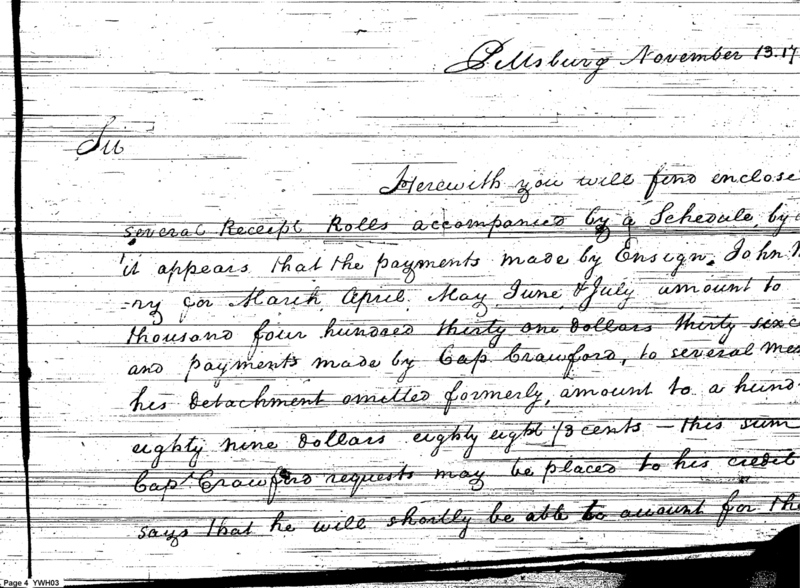 Pittsburg November 13. 17
Sir
Herewith you will find enclose
several Receipt Rolls accompanied by a Schedule, by
it appears that the payments made by Ensign John
-ry for March, April, May, June & July amount to
thousand four hundred thirty one dollars thirty six c
and payments made by Cap. Crawford, to several Me
his detachment omitted formerly, amount to a hund
eighty nine dollars eighty eight /3 cents - this sum
Capt Crawford requests may be placed to his credit
says that he will shortly be able to account for the
Page 4 YWH03